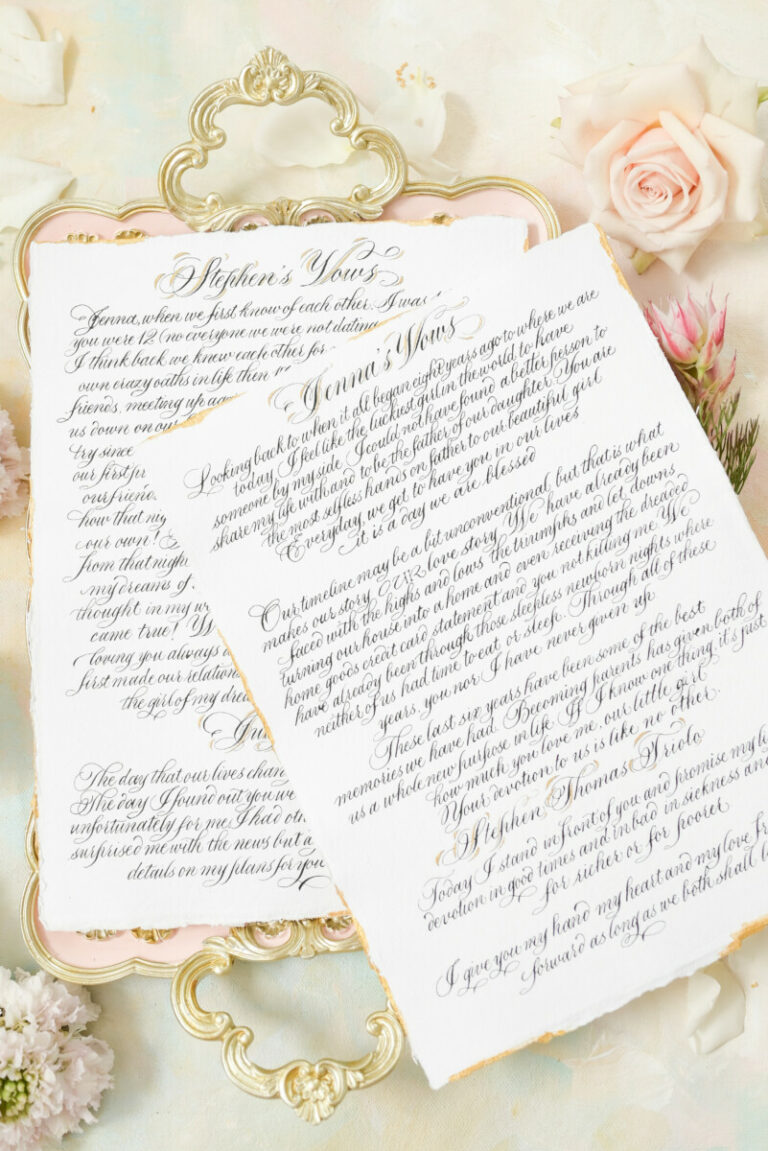 Stephen's Vows
Jenna, when we first know of each other. I was
you were 12 (no everyone we were not dating
I think back we knew each other for
own crazy oaths in life then
friends, meeting up
us down on our
try since
our first
our friend
how that
our own!
from that night
my dreams of
thought in my
came true!
loving you always
first made our relation
the girl of my
The day that our lives
The day I found out you
unfortunately for me, I had
surprised me with the news but
details on my plans for you
Jenna's Vows
Looking back to when it all began eight years ago to where we are
today I feel like the luckiest girl in the world to have
someone by my side. I could not have found a better person to
share my life with and to be the father of our daughter. You are
the most selfless hands on father to our beautiful girl
Everyday, we get to have you in our lives
it is a day we are blessed
Our timeline may be a bit unconventional, but that is what
makes our story OUR love story. We have already been
faced with the highs and lows, the triumphs and let downs
turning our house into a home and even receiving the dreaded
home goods credit card statement and you not killing me. We
have already been through those sleepless newborn nights where
neither of us had time to eat or sleep. Through all of these
years, you nor I have never given up.
These last six years have been some of the best
memories we have had. Becoming parents has given both of
us a whole new purpose in life. If I know one thing, it's just
how much you love me, our little girl
Your devotion to us is like no other.
Stephen Thomas Triolo
Today I stand in front of you and promise my
devotion in good times and in bad, in sickness and
for richer or for poorer
I give you my hand my heart and my love
forward as long as we both shall